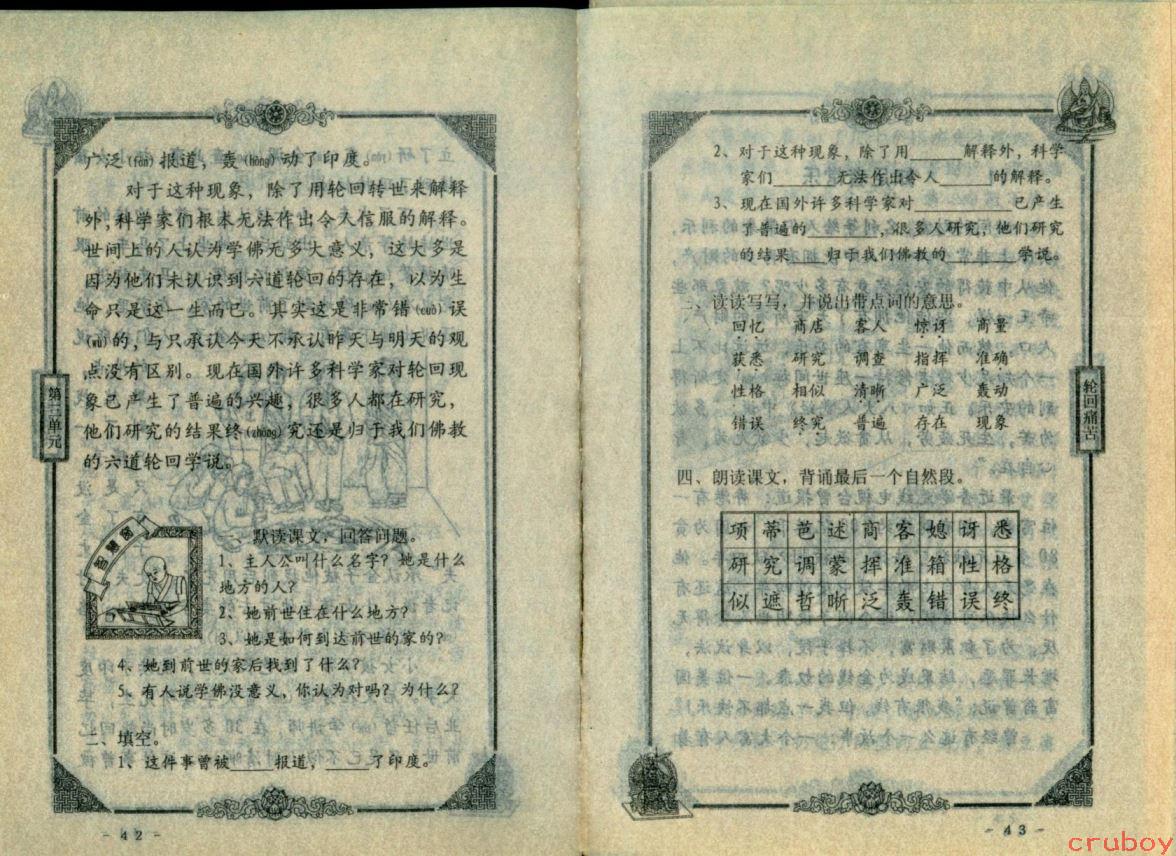 广泛(fàn)报道，轰(hōng)动了印度。
对于这种现象，除了用轮回转世来解释
外，科学家们根本无法作出令人信服的解释。
世间上的人认为学佛无多大意义，这大多是
因为他们未认识到六道轮回的存在，以为生
命只是这一生而已。其实这是非常错(cuò)误
(wù)的，与只承认今天不承认昨天与明天的观
点没有区别。现在国外许多科学家对轮回现
象已产生了普遍的兴趣，很多人都在研究，
他们研究的结果终(zhōng)究还是归于我们佛教
的六道轮回学说。
第三单元
智慧窗
默读课文，回答问题。
1、主人公叫什么名字？她是什么
地方的人？
2、她前世住在什么地方？
3、她是如何到达前世的家的？
4、她到前世的家后找到了什么？
5、有人说学佛没意义，你认为对吗？为什么？
二、填空。
1、这件事曾被____报道，____了印度。
- 42 -
2、对于这种现象，除了用_____解释外，科学
家们_____无法作出令人_____的解释。
3、现在国外许多科学家对_________已产生
了普遍的_______，很多人研究，他们研究
的结果____归于我们佛教的______学说。
三、读读写写，并说出带点词的意思。
回忆 商店 客人 惊讶 商量
获悉 研究 调查 指挥 准确
性格 相似 清晰 广泛 轰动
错误 终究 普遍 存在 现象
四、朗读课文，背诵最后一个自然段。
项 蒂 芭 述 商 客 媳 讶 悉
研 究 调 蒙 挥 准 箱 性 格
似 遮 哲 晰 泛 轰 错 误 终
轮回痛苦
- 43 -
cruboy